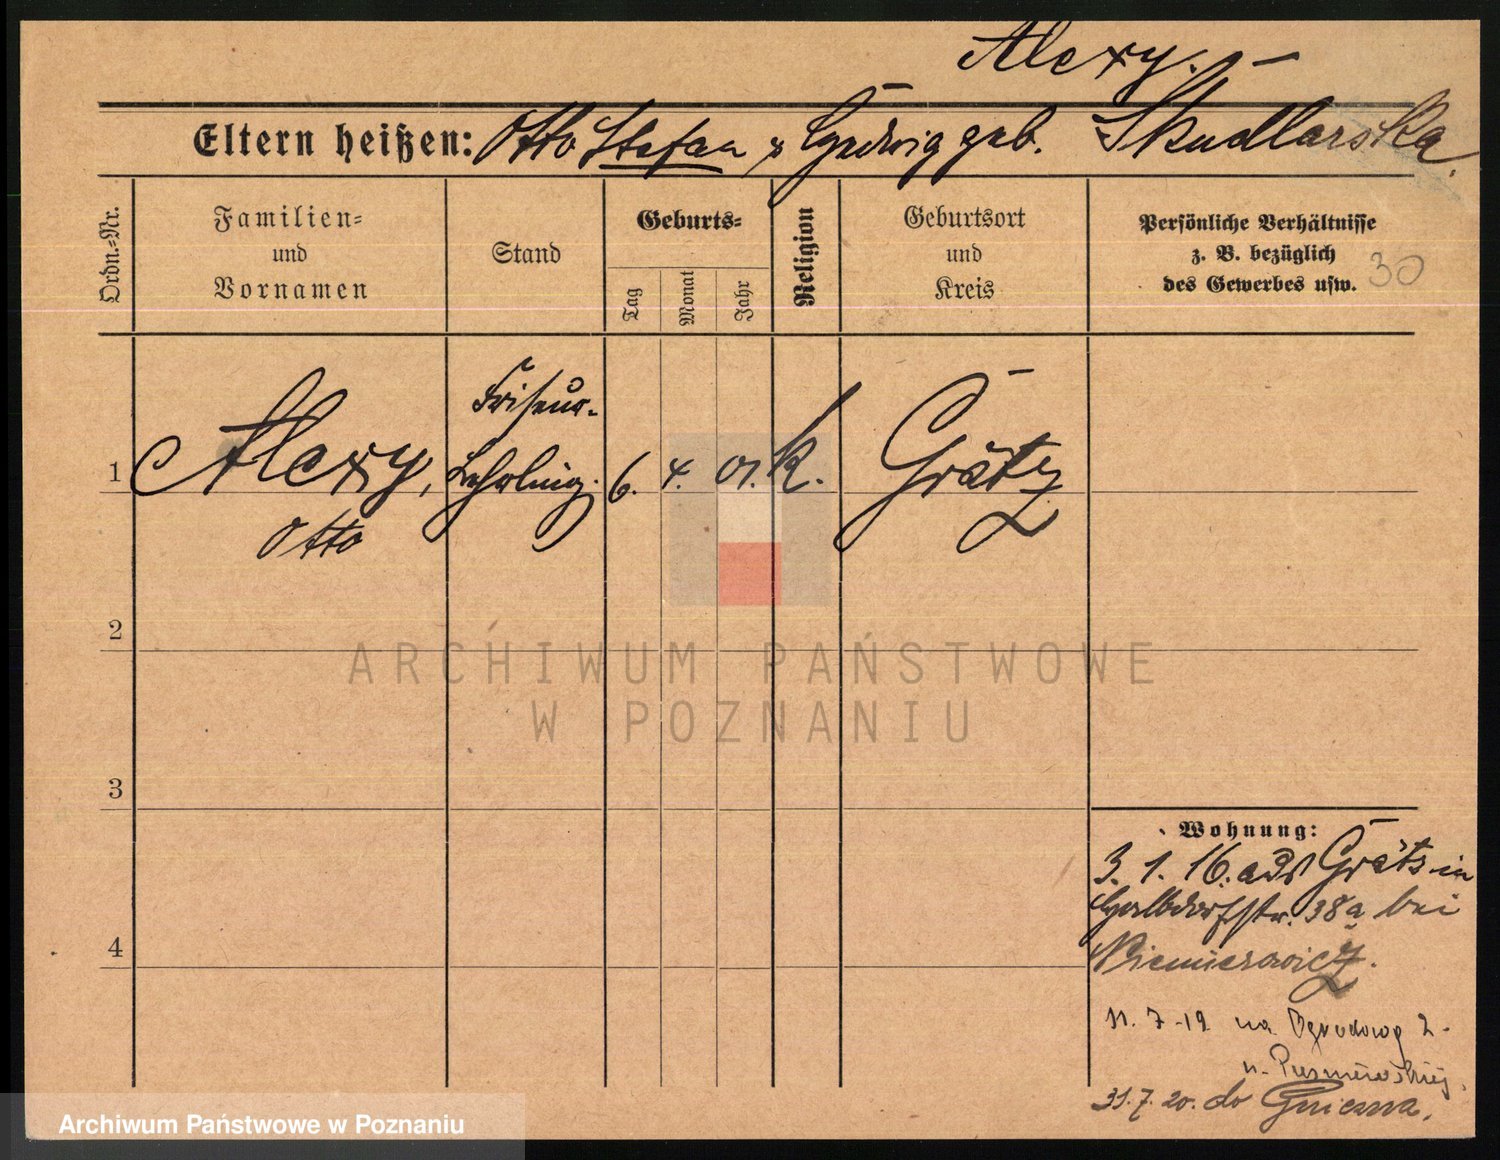 Alexy.
Eltern heißen: Otto Stefan u Hedwig geb. Skudlarska.
Ordn.=Nr.
Familien=
und
Vornamen
Stand
Geburts=
Tag
Monat
Jahr
Religion
Geburtsort
und
Kreis
Persönliche Verhältnisse
z. B. bezüglich
des Gewerbes usw.
30
1
Alexy,
Otto
Friseur-
Lehrling.
6. 4. 01. k.
Grätz
2
ARCHIWUM PAŃSTWOWE
W POZNANIU
3
Wohnung:
3. 1. 16. aus Grätz in
38a bei
Niemierowicz.
11. 7-19 na Ogrodową 2-
u.
31.7.20. do Gniezna.
4
Archiwum Państwowe w Poznaniu